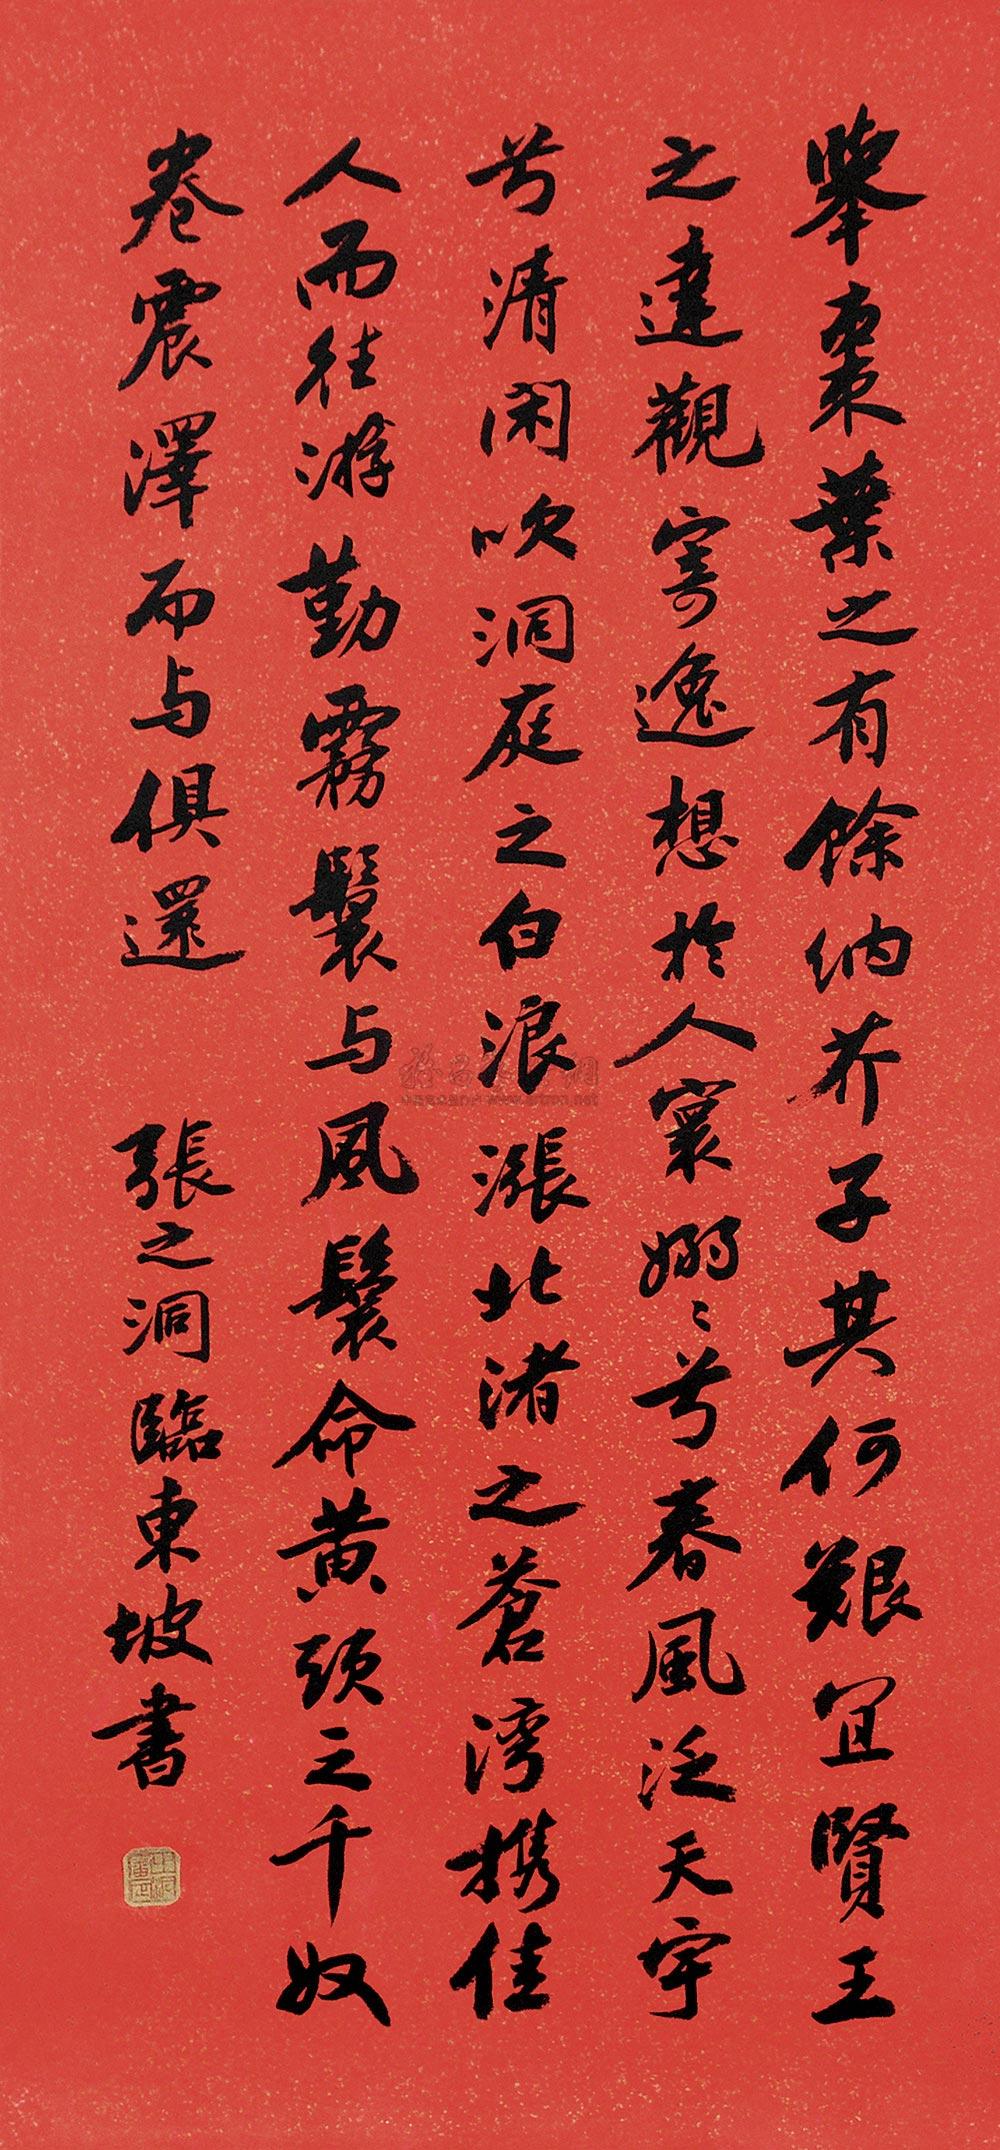 舉棗葉之有餘納芥子其何艱宜賢王
之達觀寄逸想於人寰嫋〻兮春風泛天宇
兮清閑吹洞庭之白浪漲北渚之蒼湾攜佳
人而往游勤霧鬟与風鬟命黄頭之千奴
卷震澤而与俱還
張之洞臨東坡書